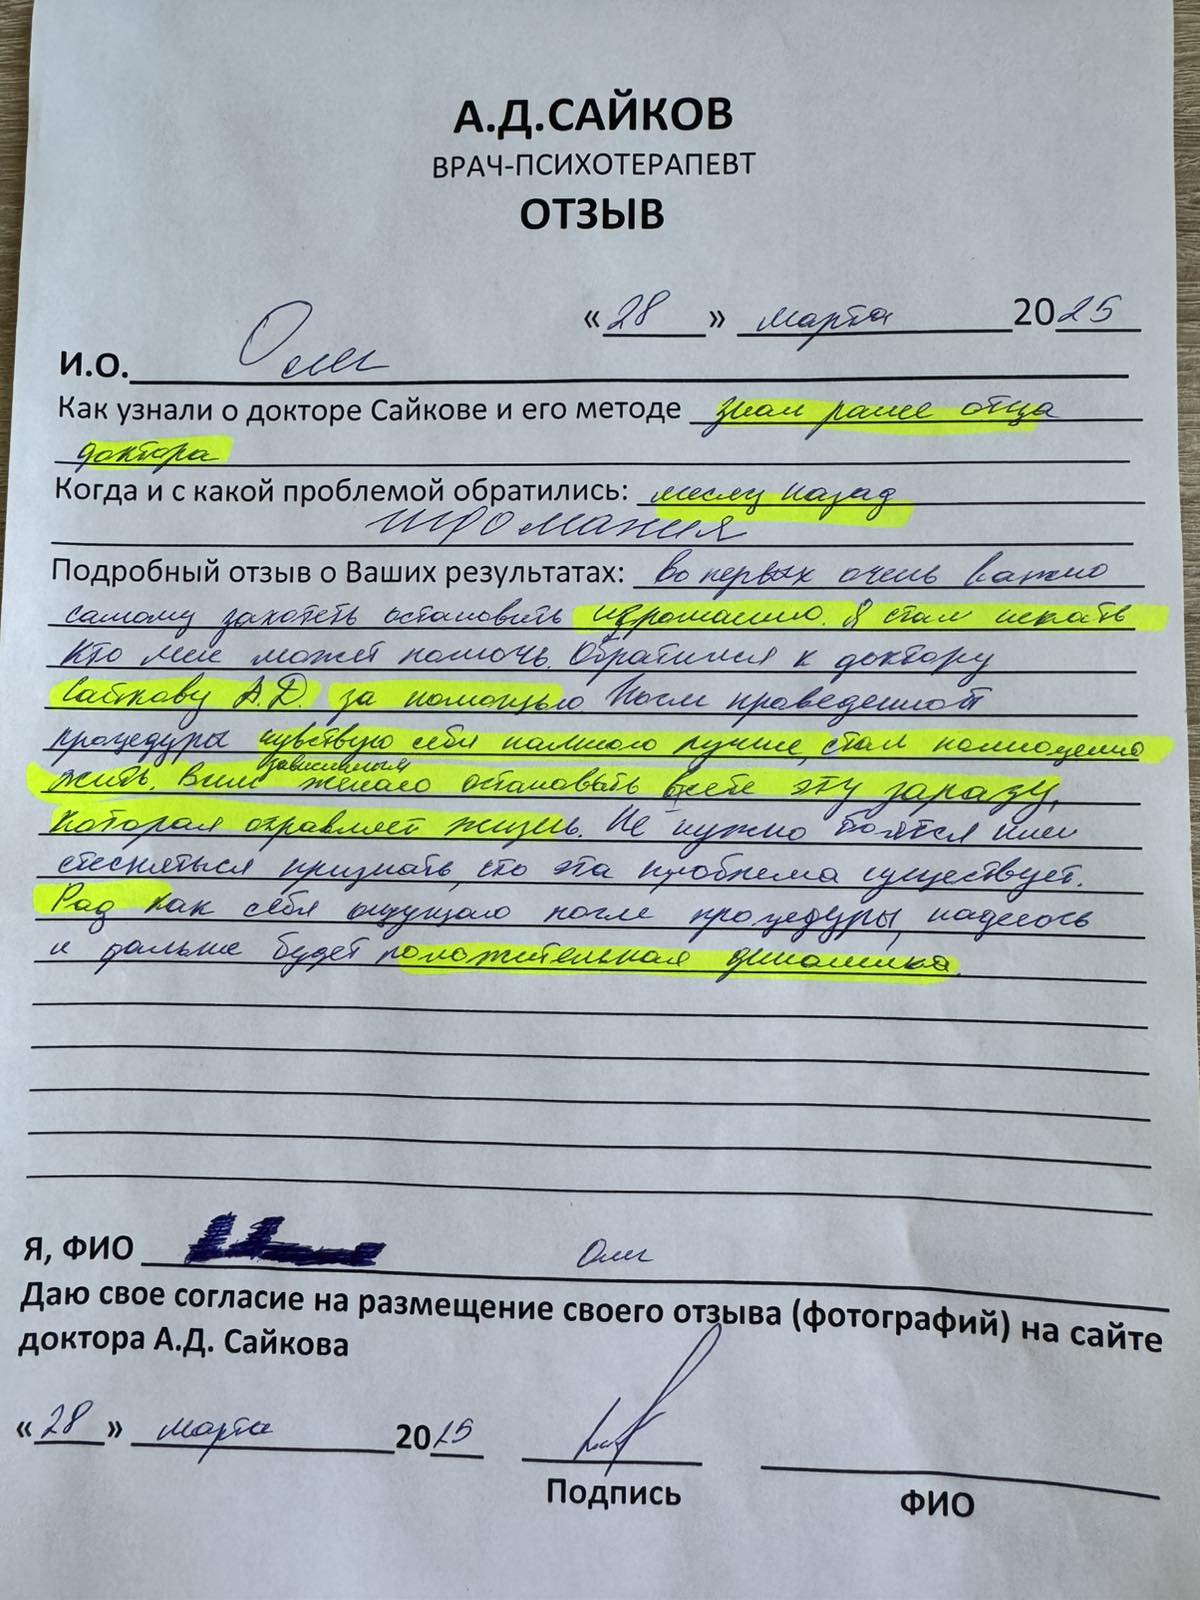 А.Д.САЙКОВ
ВРАЧ-ПСИХОТЕРАПЕВТ
ОТЗЫВ
«28» марта 2025
И.О. Олег
Как узнали о докторе Сайкове и его методе знал ранее отца
доктора
Когда и с какой проблемой обратились: месяц назад
игромания
Подробный отзыв о Ваших результатах: Во первых очень важно
самому захотеть остановить игроманию. Я стал искать
Кто мне может помочь. Обратился к доктору
Сайкову А.Д. за помощью. После проведенной
процедуры чувствую себя намного лучше, стал полноценно
жить. Всем зависимым желаю остановить в себе эту заразу,
Которая отравляет жизнь. Не нужно боятся или
стесняться признать, что эта проблема существует.
Рад как себя ощущаю после процедуры, надеюсь
и дальше будет положительная динамика.
Я, ФИО Олег
Даю свое согласие на размещение своего отзыва (фотографий) на сайте
доктора А.Д. Сайкова
«28» марта 2025
Подпись
ФИО